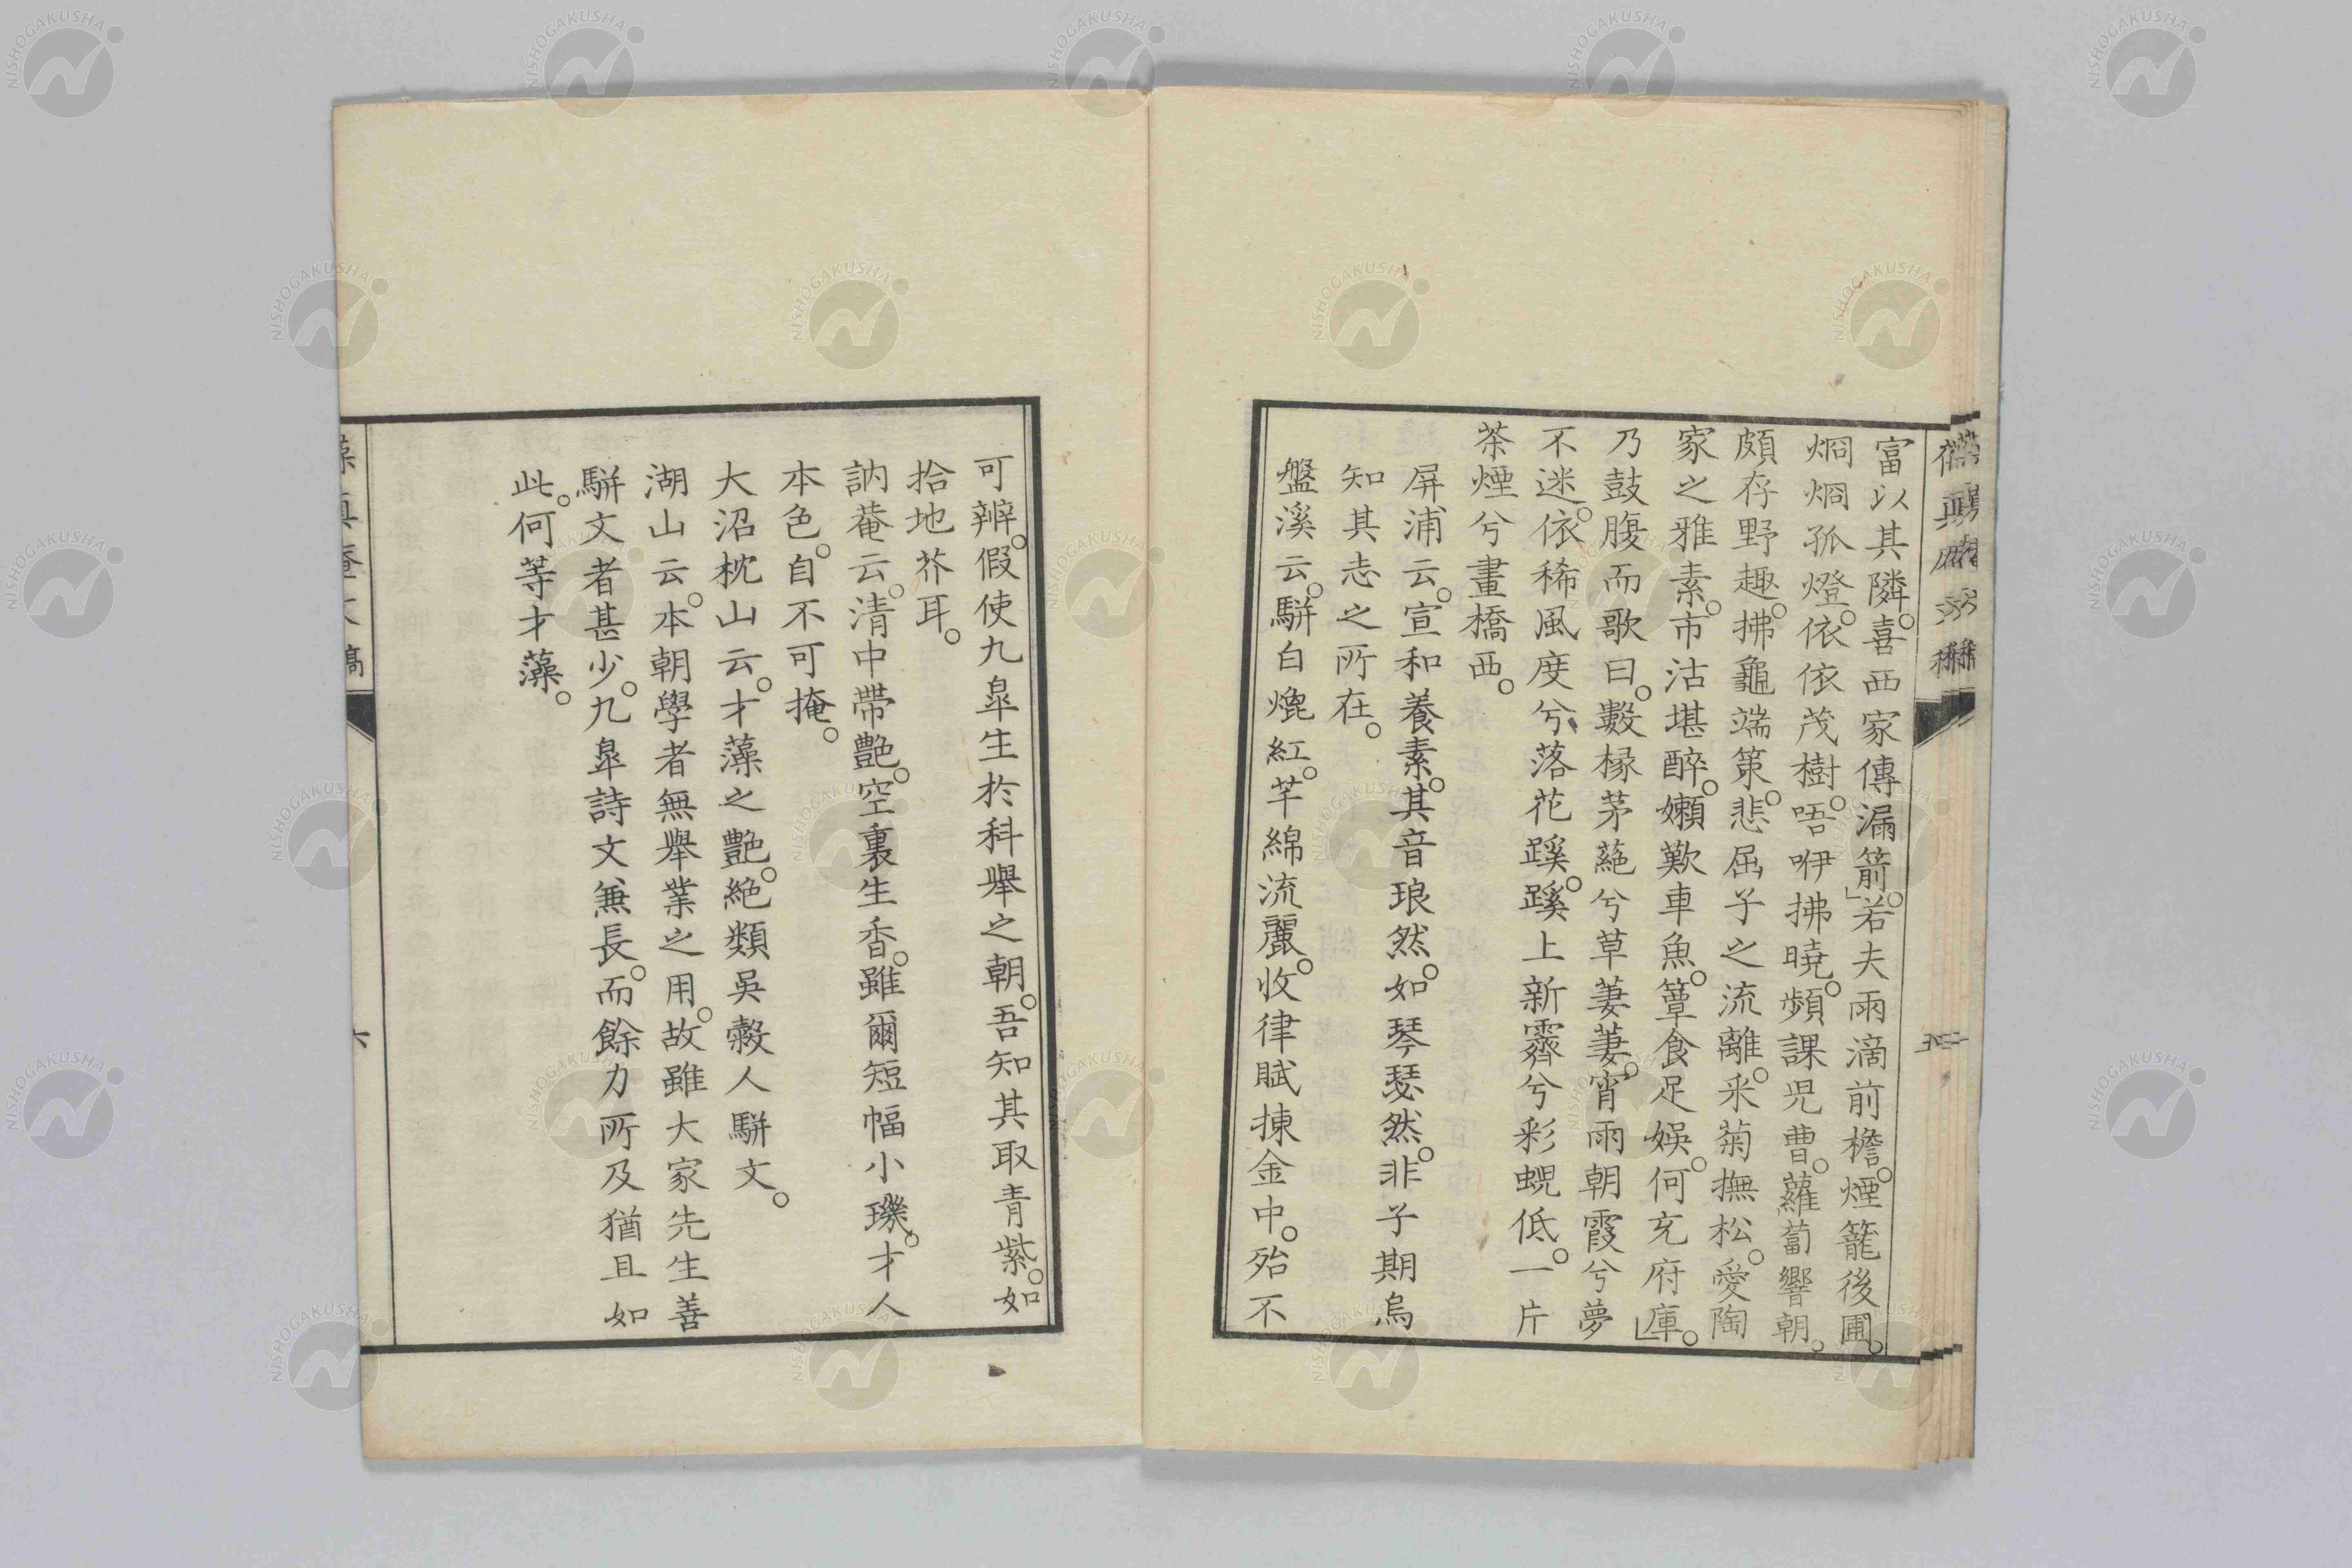 富以其隣。喜西家傳漏箭。」若夫雨滴前檐。煙籠後圃。
烱烱孤燈。依依茂樹。唔咿拂曉。頻課兒曹。蘿蔔響朝。
頗存野趣。拂龜端策。悲屈子之流離。采菊撫松。愛陶
家之雅素。市沽堪醉。嬾歎車魚。簞食足娛。何充府庫。」
乃鼓腹而歌曰。數椽茅蕝兮草萋萋。宵雨朝霞兮夢
不迷。依稀風度兮落花蹊。蹊上新霽兮彩蜺低。一片
茶煙兮畫橋西。
屏浦云。宣和養素。其音琅然。如琴瑟然。非子期烏
知其志之所在。
盤溪云。駢白焜紅。芊綿流麗。收律賦揀金中。殆不
可辨。假使九皐生於科舉之朝。吾知其取青紫。如
拾地芥耳。
訥菴云。清中帶艷。空裏生香。雖爾短幅小璣。才人
本色。自不可掩。
大沼枕山云。才藻之艷。絕類吳穀人駢文。
湖山云。本朝學者無舉業之用。故雖大家先生善
駢文者甚少。九皐詩文兼長。而餘力所及猶且如
此。何等才藻。
六
NISHOGAKUSHA